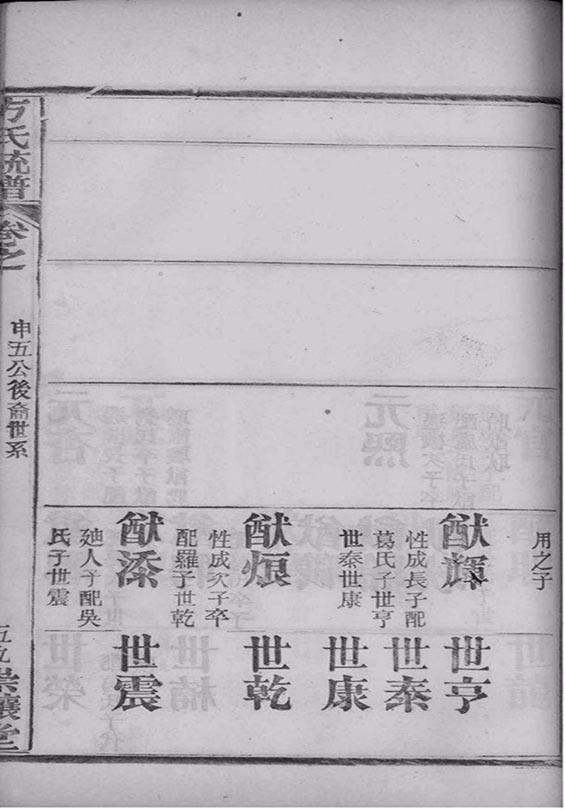 用之子
猷輝
性成長子配
葛氏子世亨
世泰世康
猷
性成次子卒
配羅子世乾
猷添
人子配吳
氏子世震
世亨
世泰
世康
世乾
世震
方氏統譜
卷之
申五公後裔世系
五九
崇讓堂